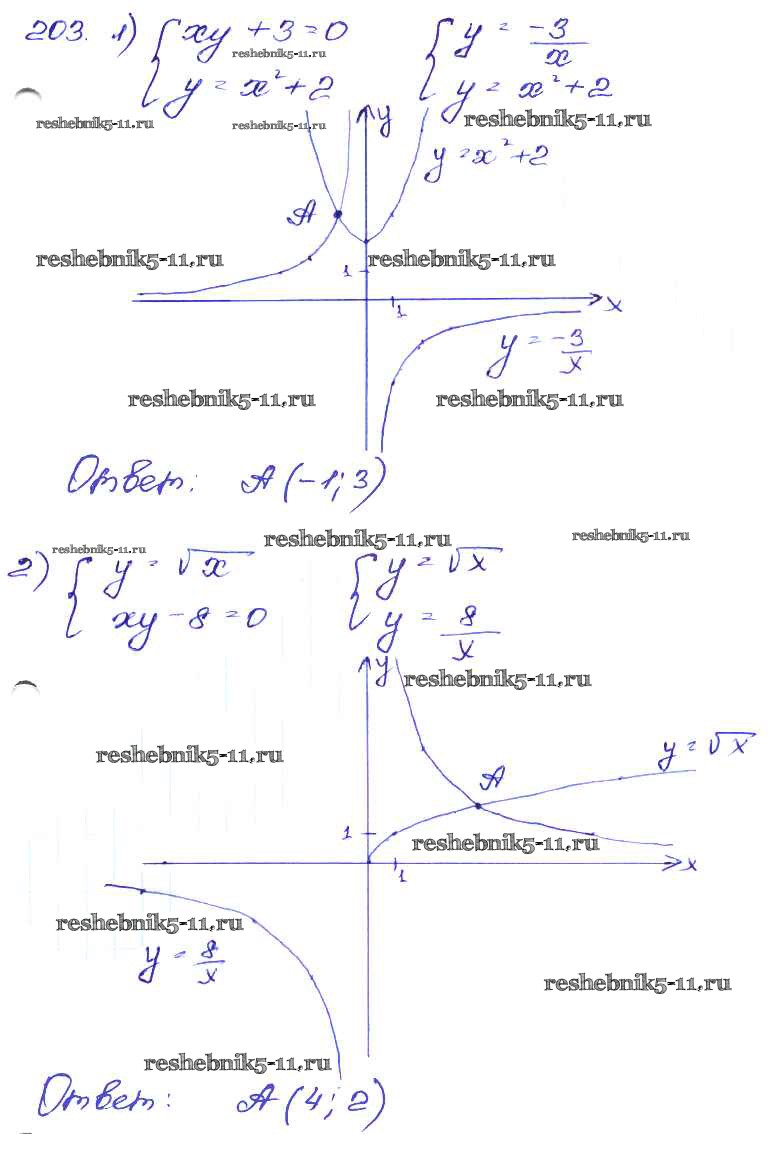 203. 1) { xy + 3 = 0 { y = -3/x
reshebnik5-11.ru
y = x² + 2 y = x² + 2
reshebnik5-11.ru reshebnik5-11.ru reshebnik5-11.ru
y
y = x² + 2
A
reshebnik5-11.ru reshebnik5-11.ru
1
1 x
y = -3/x
reshebnik5-11.ru reshebnik5-11.ru
Ответ: A (-1; 3)
reshebnik5-11.ru reshebnik5-11.ru
reshebnik5-11.ru
2) { y = √x { y = √x
xy - 8 = 0 y = 8/x
y
reshebnik5-11.ru
y = √x
reshebnik5-11.ru
A
1
reshebnik5-11.ru
1 x
reshebnik5-11.ru
y = 8/x
reshebnik5-11.ru
reshebnik5-11.ru
Ответ: A (4; 2)